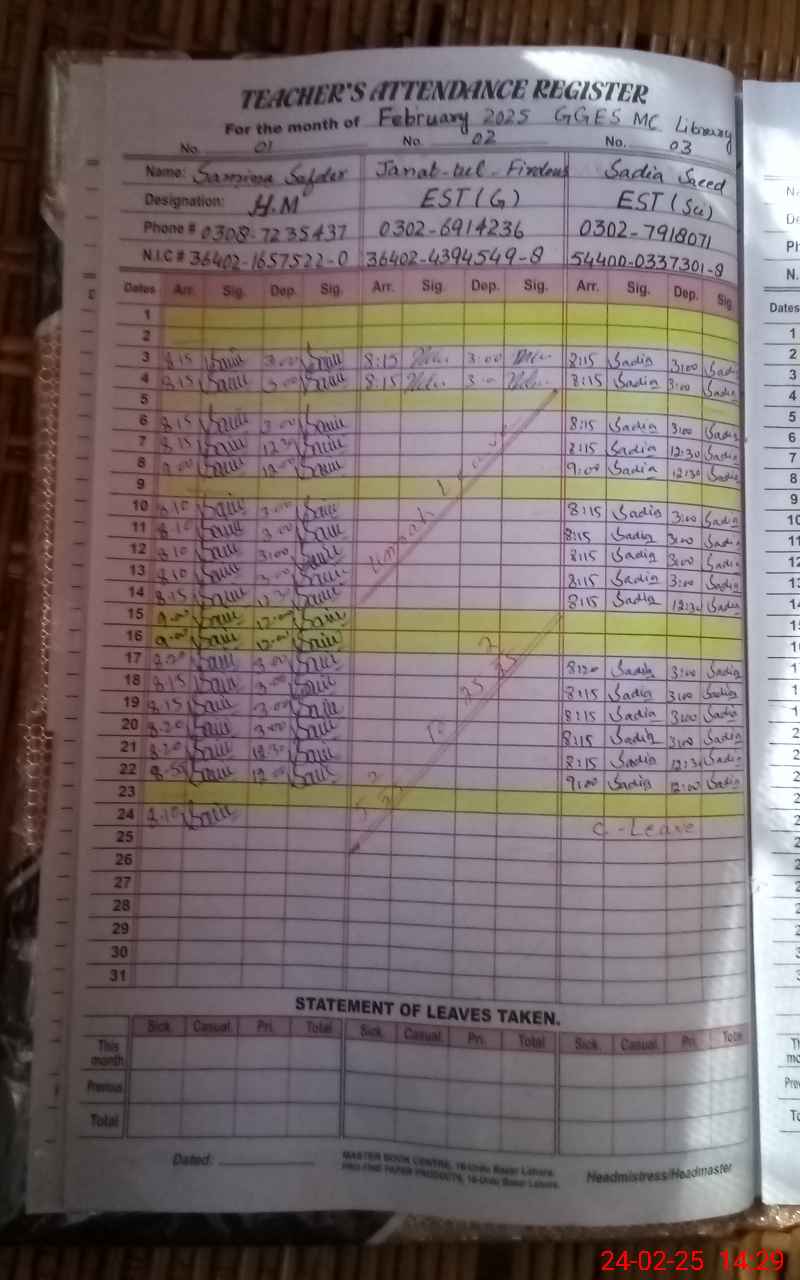 TEACHER'S ATTENDANCE REGISTER
For the month of February 2025 GGES MC Library
No. 01 No. 02 No. 03
Name: Samina Safder Janat-tul-Firdous Sadia Saeed
Designation: H.M EST (G) EST (Sci)
Phone # 0308-7235437 0302-6914236 0302-7918071
N.I.C # 36402-1657522-0 36402-4394549-8 54400-0337301-8
Dates Arr. Sig. Dep. Sig. Arr. Sig. Dep. Sig. Arr. Sig. Dep. Sig.
1
2
3 8:15 3:00 8:15 3:00 8:15 Sadia 3:00 Sadia
4 8:15 3:00 8:15 3:0 8:15 Sadia 3:00 Sadia
5
6 8:15 3:00 8:15 Sadia 3:00 Sadia
7 8:15 12:30 8:15 Sadia 12:30 Sadia
8 9:00 12:00 9:00 Sadia 12:30 Sadia
9
10 8:10 3:00 8:15 Sadia 3:00 Sadia
11 8:10 3:00 8:15 Sadia 3:00 Sadia
12 8:10 3:00 8:15 Sadia 3:00 Sadia
13 8:10 3:00 8:15 Sadia 3:00 Sadia
14 8:15 8:15 Sadia 12:30 Sadia
15 9:00 12:00
16 9:00 12:00
17 8:20 3:00 8:20 Sadia 3:00 Sadia
18 8:15 3:00 8:15 Sadia 3:00 Sadia
19 8:15 3:00 8:15 Sadia 3:00 Sadia
20 8:20 3:00 8:15 Sadia 3:00 Sadia
21 8:20 12:30 8:15 Sadia 12:30 Sadia
22 8:55 12:00 9:00 Sadia 12:00 Sadia
23
24 8:10 C-Leave
25
26
27
28
29
30
31
Umrah Leave
STATEMENT OF LEAVES TAKEN.
Sick. Casual. Pri. Total Sick. Casual. Pri. Total Sick. Casual. Pri. Total
This month
Previous
Total
Dated:
MASTER BOOK CENTRE, 16-Urdu Bazar Lahore.
PRO-FINE PAPER PRODUCTS, 16-Urdu Bazar Lahore.
Headmistress/Headmaster
24-02-25 14:29